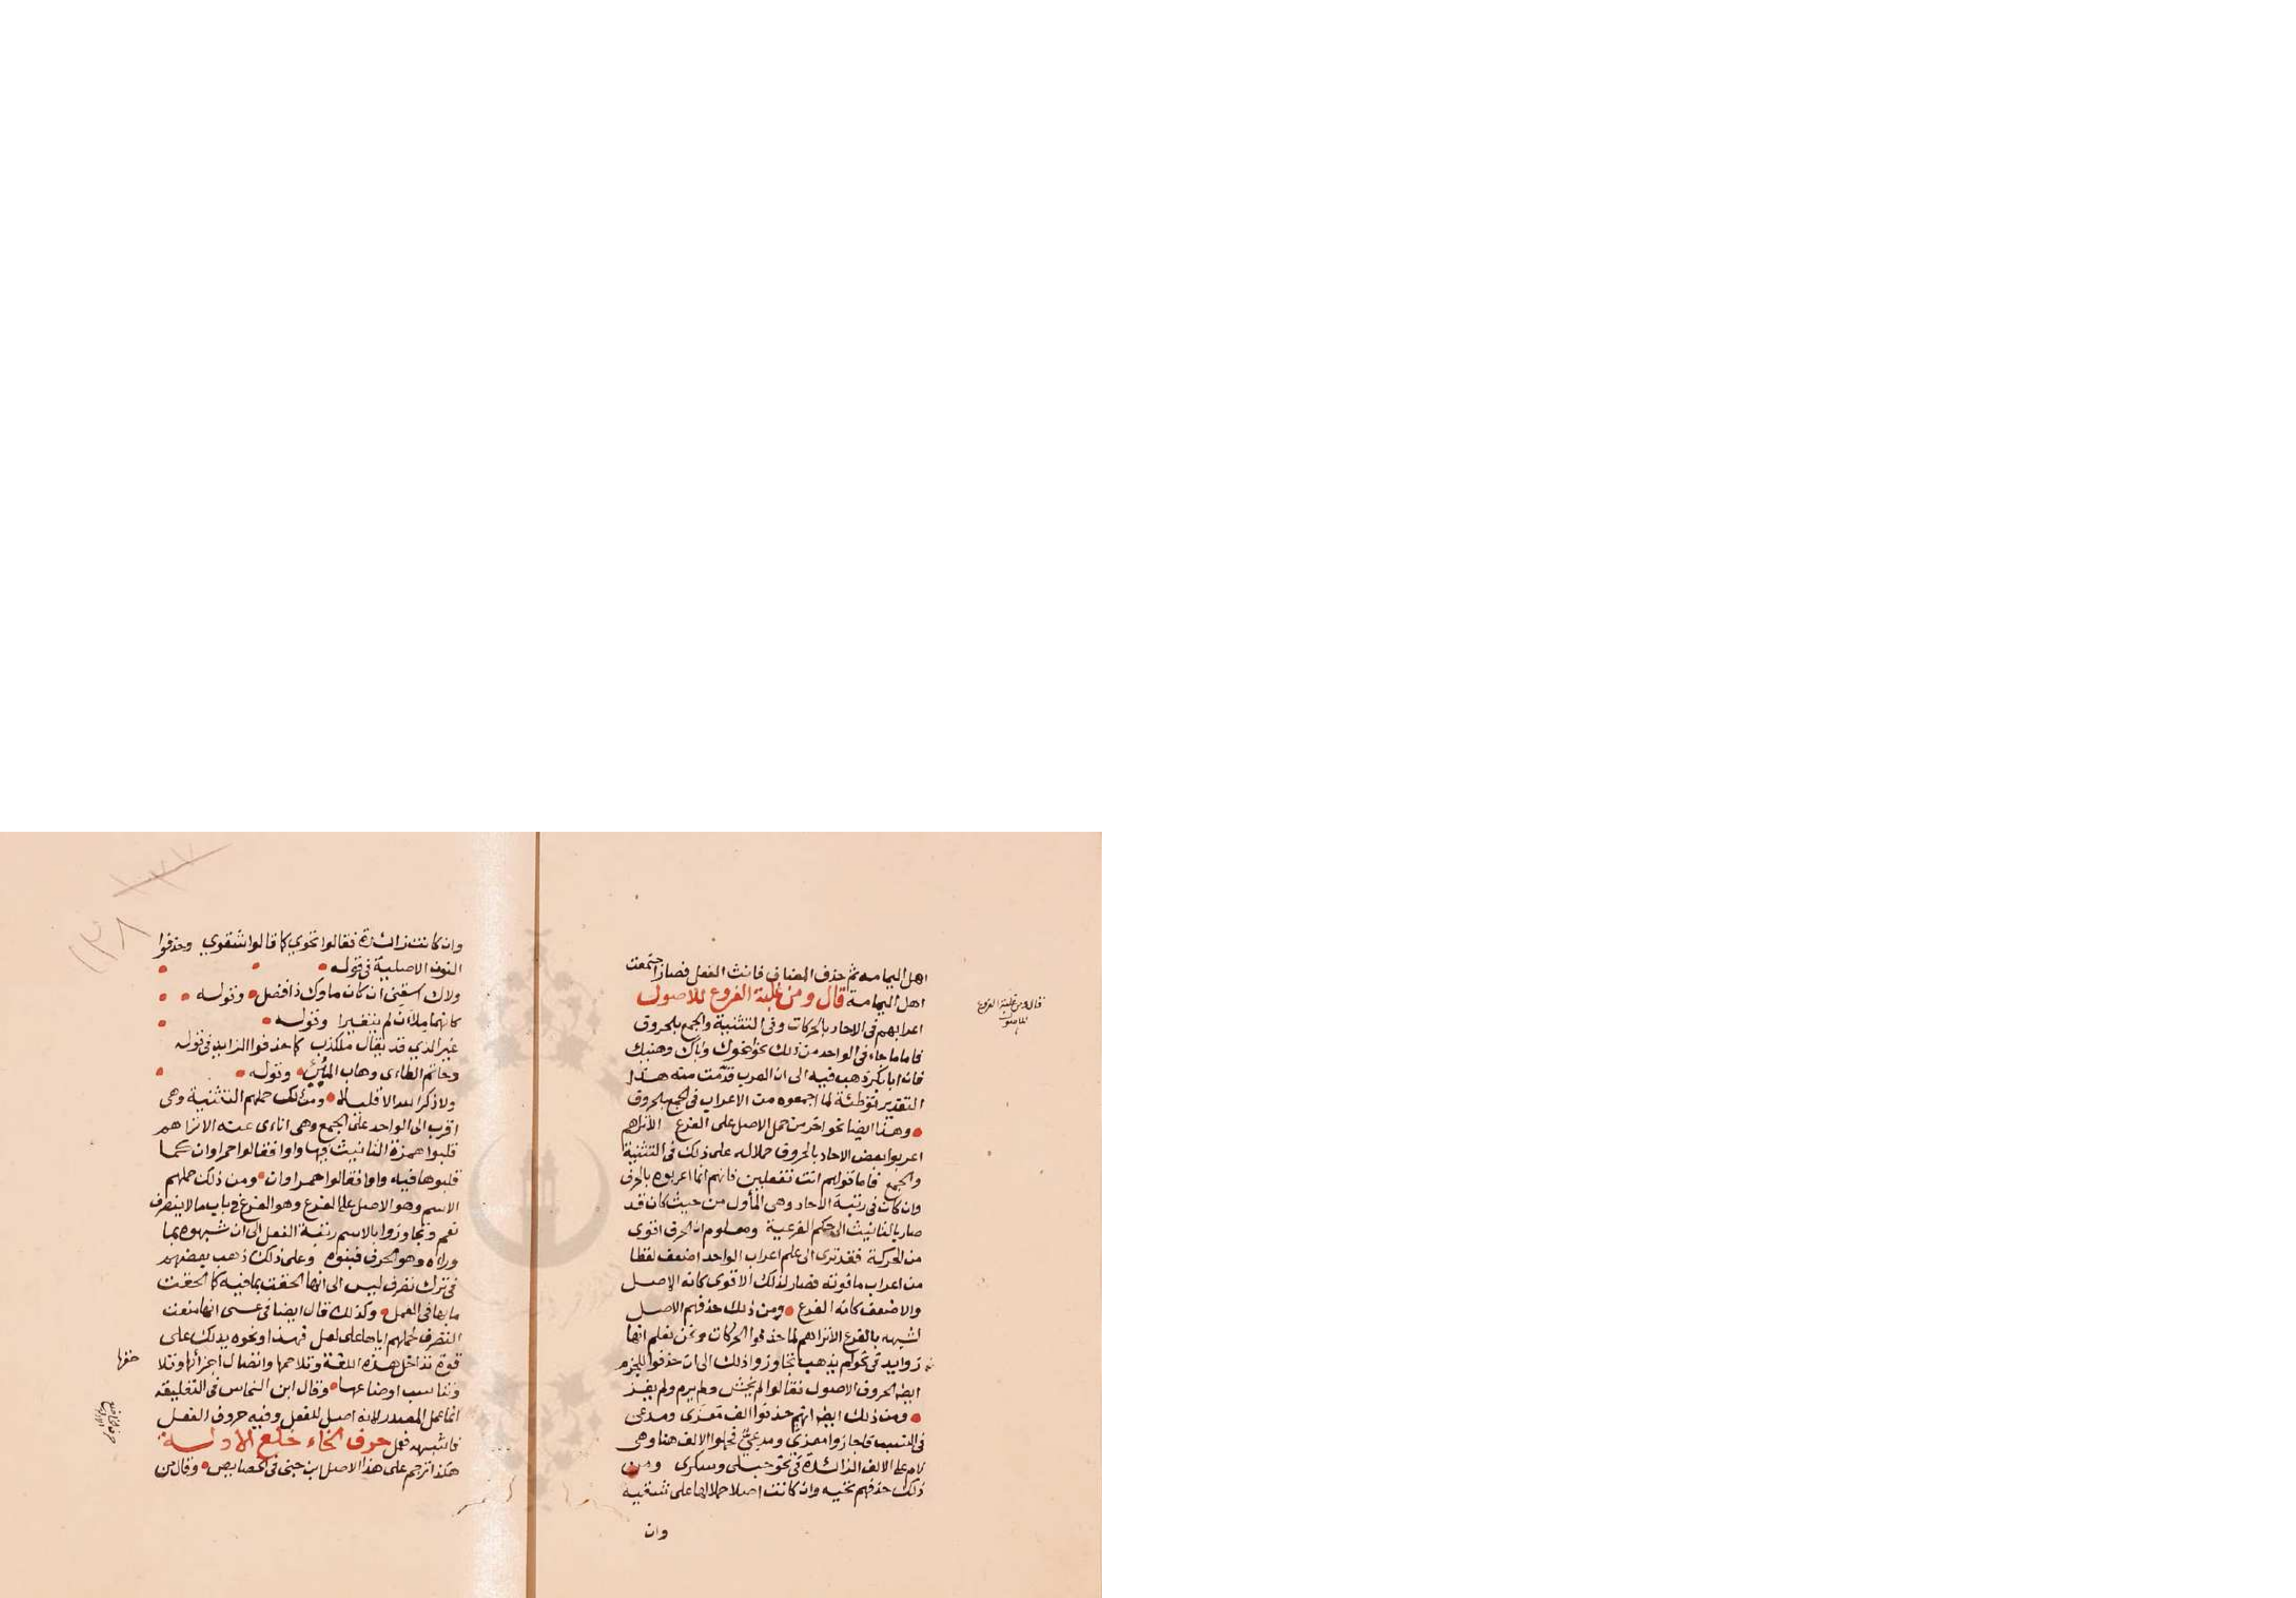 اهل اليمامه ثم حذف المضاف فانث الفعل فصار اجتمعت
اهل اليمامة قال ومن غلبة الفروع للاصول
اعرابهم في الاحاد بالحركات وفي التثنية والجمع بالحروف
فاما ما جاء في الواحد من ذلك نحو اخوك واباك وهنيك
فان ابا بكر ذهب فيه الى ان العرب قدمت منه هذا
التقدير توطئة لما اجمعوه من الاعراب في الجمع بالحروف
وهذا ايضا نحو اخر من حمل الاصل على الفرع الا تراهم
اعربوا بعض الاحاد بالحروف حملا له على ذلك في التثنية
والجمع فاما قولهم انت تفعلين فانهم انما اعربوه بالحرف
وان كان في رتبة الاحاد وهي الأول من حيث كان قد
صار بالتانيث الى حكم الفرعية ومعلوم ان الحرف اقوى
من الحركة فقد ترى الى علم اعراب الواحد اضعف لفظا
من اعراب ما فوقه فصار لذلك الاقوى كانه الاصل
والاضعف كانه الفرع ومن ذلك حذفهم الاصل
لشبهه بالفرع الا تراهم لما حذفوا الحركات ونحن نعلم انها
زوايد في نحو لم يذهب تجاوزوا ذلك الى ان حذفوا للجزم
ايضا الحروف الاصول فقالوا لم يخش ولم يرم ولم يغز
ومن ذلك ايضا انهم حذفوا الف معزى ومدعى
في النسب فاجازوا معزي ومدعي فحملوا الالف هنا وهي
لام على الالف الزائدة في نحو حبلى وسكرى ومن
ذلك حذفهم تحيه وان كانت اصلا حملا لها على شقية
وان
قال ومن غلبة الفروع
للاصول
وان كانت زائدة فقالوا تحوي كما قالوا شقوي وحذفوا
النون الاصلية في قوله
ولاك اسقني ان كان ماوك ذا فضل وقوله
كانهما ملآن لم يتغيرا وقوله
غير الذي قد يقال ملكذب كما حذفوا الزايد في قوله
وحاتم الطاءى وهاب المئي وقوله
ولا ذكرا لله الا قليلا ومن ذلك حملهم التثنية وهي
اقرب الى الواحد على الجمع وهي اناءى عنه الا تراهم
قلبوا همزة التانيث فيها واوا فقالوا حمراوان كما
قلبوها فيه واوا فقالوا حمراوات ومن ذلك حملهم
الاسم وهو الاصل على الفرع وهو الفرع في باب ما لا ينصرف
نعم وتجاوزوا بالاسم رتبة الفعل الى ان شبهوه بما
وراه وهو الحرف فبنوه وعلى ذلك ذهب بعضهم
في ترك تصرف ليس الى انها الحقت بما فيه كما الحقت
ما بها في العمل وكذلك قال ايضا في عسى انها منعت
التصرف لحملهم اياها على لعل فهذا ونحوه يدلك على
قوة تداخل هذه اللغة وتلاحمها واتصال اجزائها وتلا
وتناسب اوضاعها وقال ابن النحاس في التعليقه
انما عمل المصدر لانه اصل للفعل وفيه حروف الفعل
فاشبه فعل حرف الخاء خلع الادلة
هكذا ترجم على هذا الاصل ابن جني في الخصايص وقال من
حقها
١٣٨